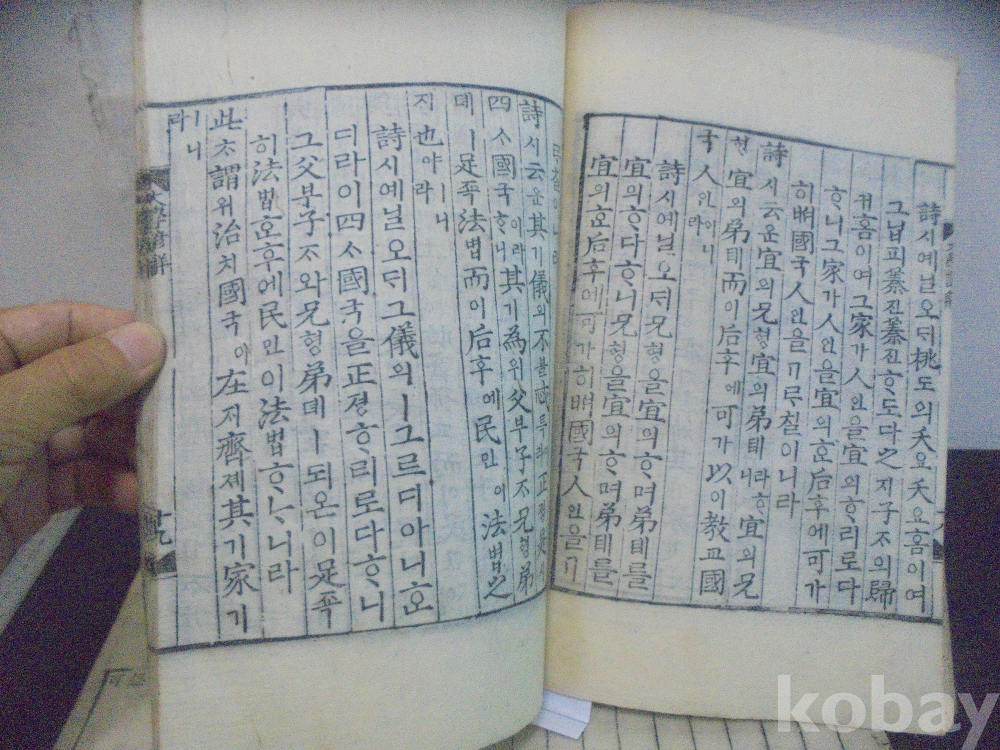 詩시예닐오ᄃᆡ桃도의夭요夭요홈이여
그닙피蓁진蓁진ᄒᆞ도다之지子ᄌᆞ의歸
귀홈이여그家가人인을宜의ᄒᆞ리로다
ᄒᆞ니그家가人인을宜의ᄒᆞᆫ后후에可가
히ᄡᅥ國국人인을ᄀᆞᄅᆞ칠이니라
詩시云운宜의兄형宜의弟뎨라ᄒᆞ니宜의兄
형宜의弟뎨而이后후에可가以이敎교國
국人인이니라
詩시예닐오ᄃᆡ兄형을宜의ᄒᆞ며弟뎨를
宜의ᄒᆞ다ᄒᆞ니兄형을宜의ᄒᆞ며弟뎨를
宜의ᄒᆞᆫ后후에可가히ᄡᅥ國국人인을ᄀᆞ
詩시云운其기儀의不블忒특이라正졍是시
四ᄉᆞ國국이라ᄒᆞ니其기爲위父부子ᄌᆞ兄형弟
뎨ㅣ足죡法법而이后후에民민이法법之
지也야ㅣ니라
詩시예닐오ᄃᆡ그儀의ㅣ그르디아니ᄒᆞᆫ
디라이四ᄉᆞ國국을正졍ᄒᆞ리로다ᄒᆞ니
그父부子ᄌᆞ와兄형弟뎨ㅣ되온이足죡
히法법ᄒᆞᆫ后후에民민이法법ᄒᆞᄂᆞ니라
此ᄎᆞ謂위治치國국이在ᄌᆡ齊졔其기家가
ㅣ니라
大學諺解
kobay